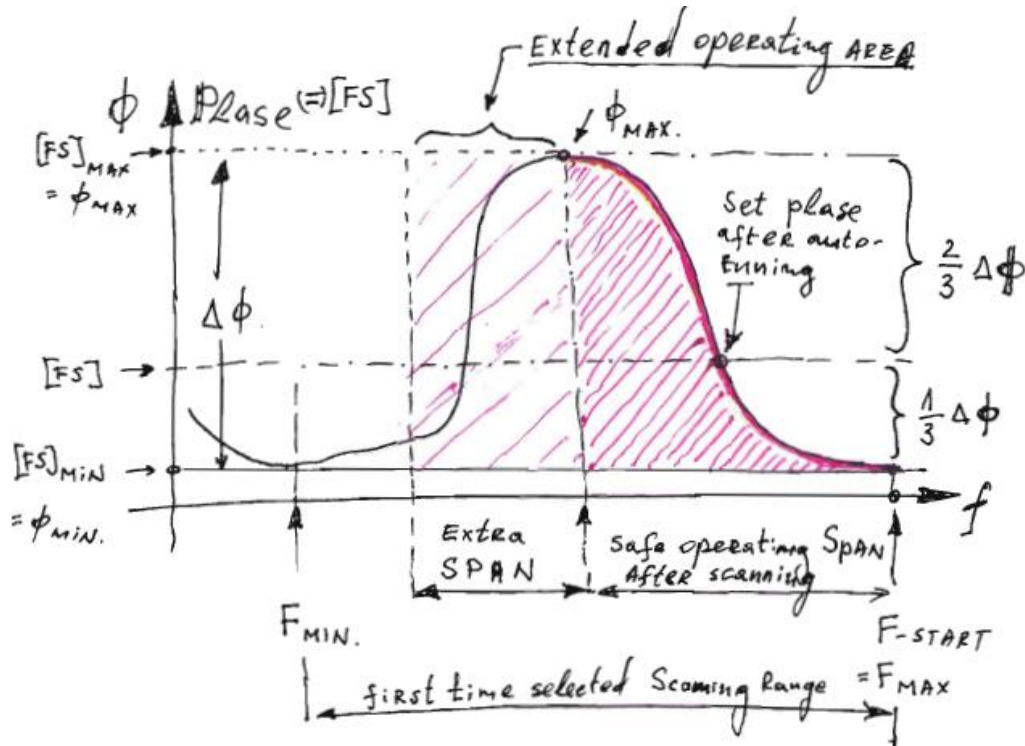 Extended operating AREA
ϕ Plase (=) [FS]
ϕMAX.
[FS]MAX
= ϕMAX
Set plase
after auto-
tunning
2/3 Δϕ
Δϕ.
[FS]
1/3 Δϕ
[FS]MiN
= ϕMIN.
f
Extra
SPAN
Safe operating SpAN
After scanning
FMIN.
F-START
= FMAX
first time selected Scanning Range